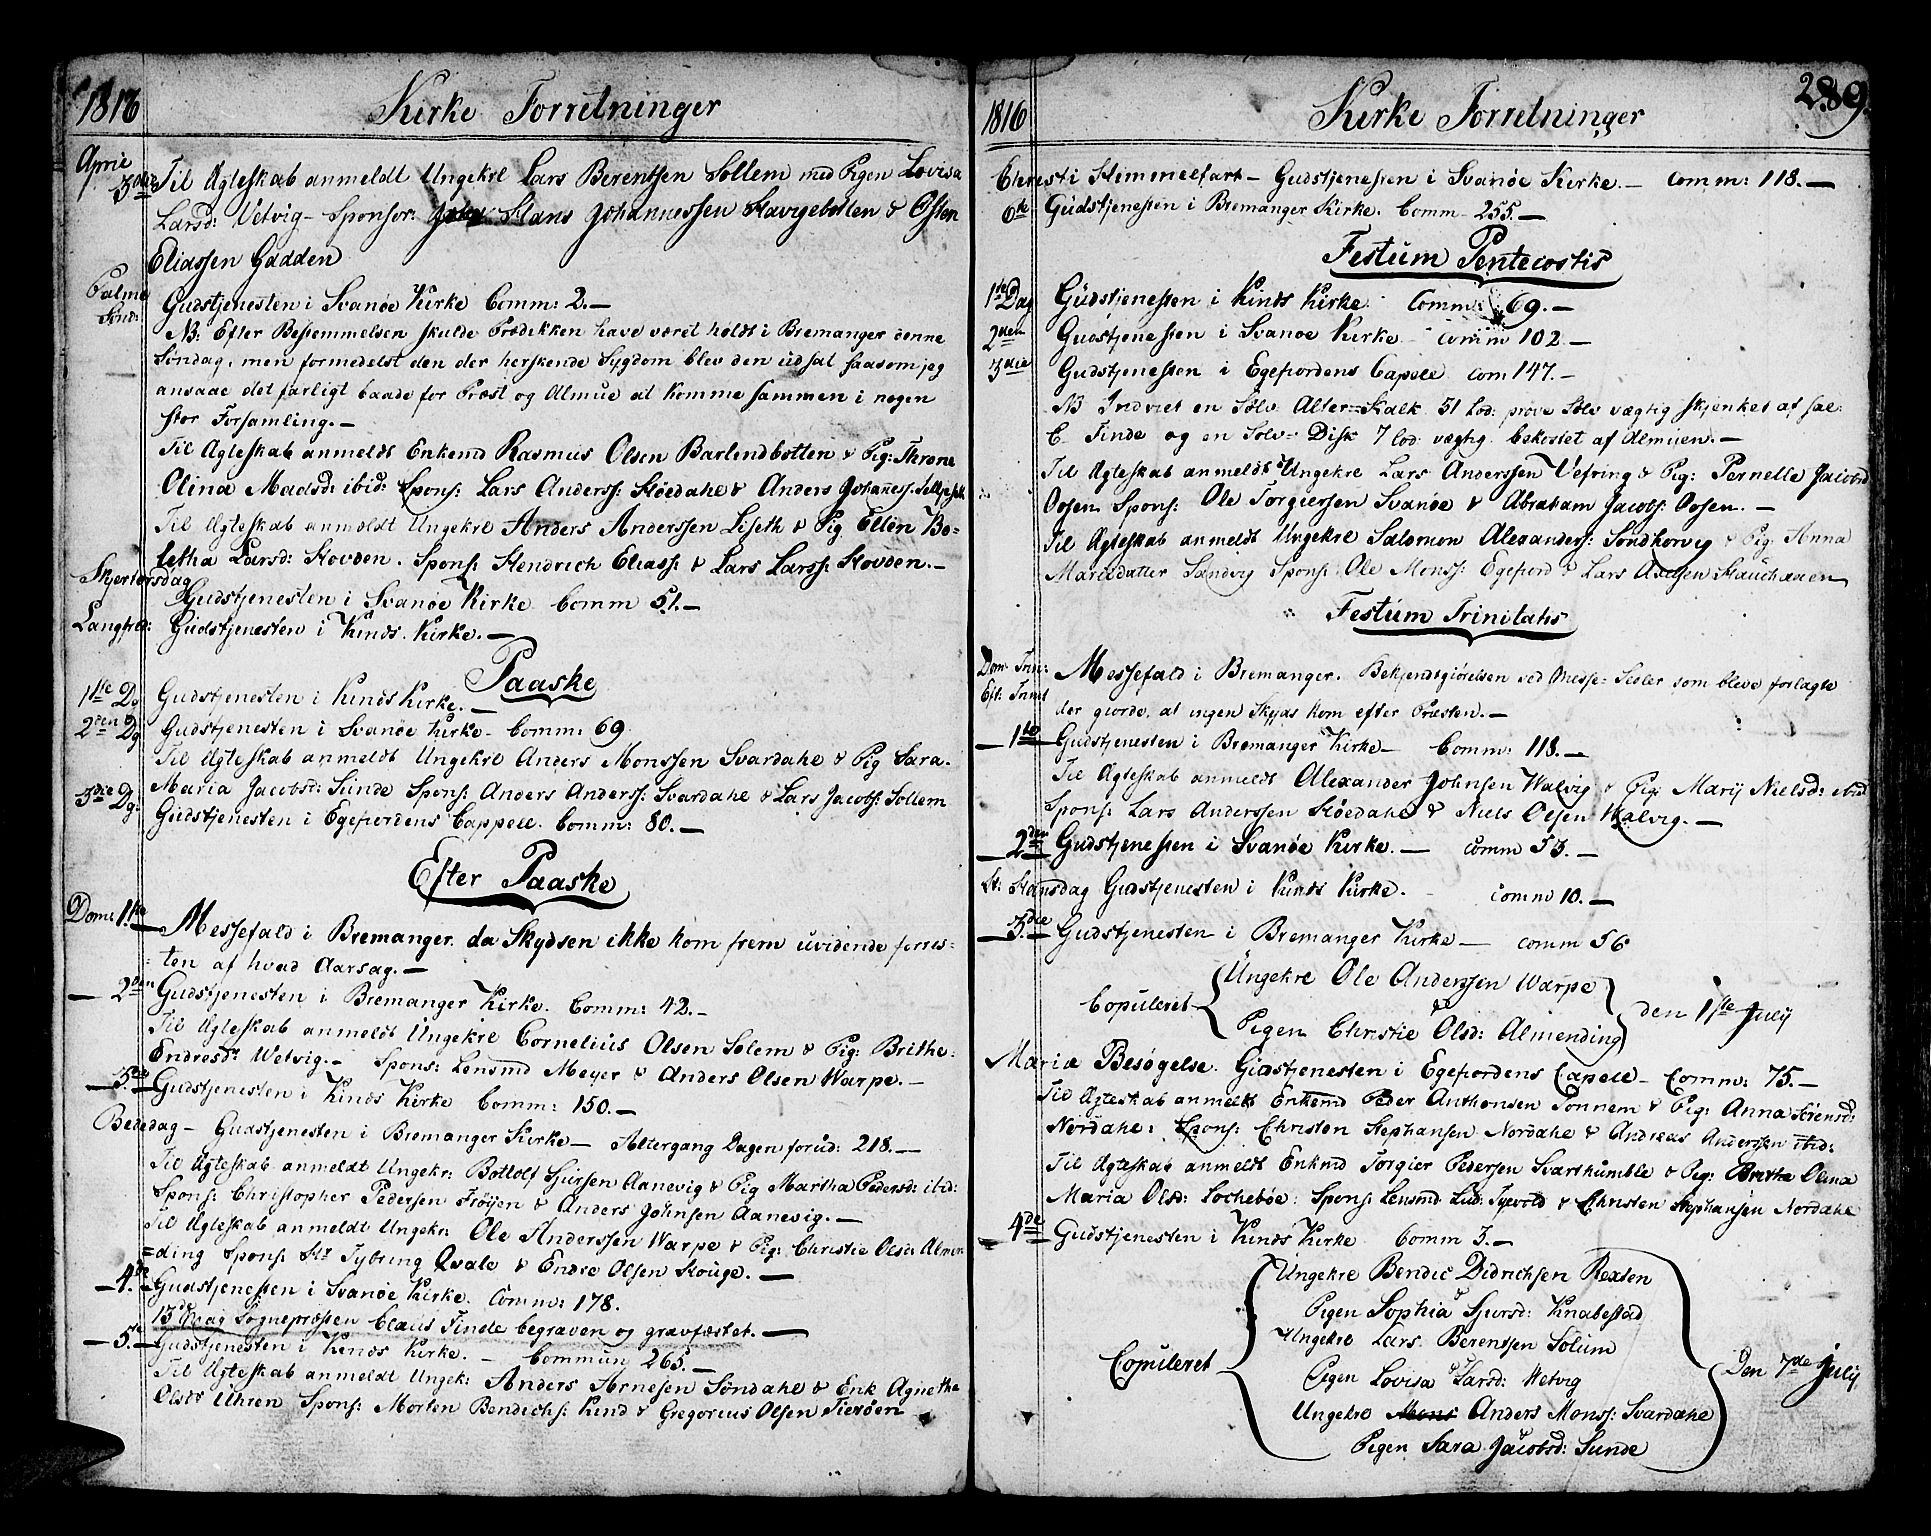 1816 Kirke Forretninger
April
3die Til Ægteskab anmeldt Ungekrl Lars Berentsen Sollem med Pigen Lovisa
Larsd: Vetvig - Sponsor: Hans Johannessen Havigebotten & Osten
Eliassen Gadden
Palme Sønd: Gudstjenesten i Svanøe Kirke Comm: 2. -
NB: Efter Bestemmelsen skulde Prædikken have været holdt i Bremanger denne
Søndag, men formedelst den der herskende Sygdom blev den udsat saasom jeg
ansaae det farligt baade for Præst og Almue at komme sammen i nogen
stor Forsamling. -
Til Ægteskab anmeldt Enkemd Rasmus Olsen Barlindbotten & Pig: Throne
Olina Madsd: ibid: Spons: Lars Anderss: Høedahl & Anders Johañess:
Til Ægteskab anmeldt Ungekrl Anders Anderssen Liseth & Pig Ellen Bo-
letha Larsd: Hovden. Spons: Hendrich Eliass: & Lars Larss: Hovden. -
Skjertorsdag Gudstjenesten i Svanøe Kirke Comm 51. -
Langfred: Gudstjenesten i Kinds Kirke. -
Paaske
1ste Dg Gudstjenesten i Kinds Kirke. -
2den Dg Gudstjenesten i Svanøe Kirke - Comm: 69
Til Ægteskab anmeldt Ungekrl Anders Monssen Svardahl & Pig Sara
Maria Jacobsd: Sunde Spons: Anders Anderss: Svardahl & Lars Jacobs: Sollem
3die Dg: Gudstjenesten i Egefiordens Cappell. Comm: 80. -
Efter Paaske
Dom: 1ste Messefald i Bremanger da Skydsen ikke kom frem uvidende forres-
ten af hvad Aarsag. -
2den Gudstjenesten i Bremanger Kirke. Comm: 42. -
Til Ægteskab anmeldt Ungekrl Cornelius Olsen Solem & Pig: Brithe
Endresdr Wetvig. - Spons: Lensmd Meyer & Anders Olsen Warpe. -
3die Gudstjenesten i Kinds Kirke Comm: 150. -
Bededag - Gudstjenesten i Bremanger Kirke - Altergang Dagen forud: 218. -
Til Ægteskab anmeldt Ungekr: Bottolf Sjursen Aanevig & Pig Martha Pedersd: ibid:
Spons: Christopher Pedersen Frøijen & Anders Johnsen Aanevig. -
Til Ægteskab anmeldt Ungekr: Ole Anderssen Warpe & Pig: Christie Olsd: Almen-
ding Spons: Hr Fybring Qvale & Endre Olsen Houge. -
4de Gudstjenesten i Svanøe Kirke. Comm: 178.
13de Mag Sognepræsten Claus Finde begraven og gravfæstet. -
5te Gudstjenesten i Kinds Kirke. - Commun 265. -
Til Ægteskab anmeldt Ungek: Anders Arnesen Söndahl & Enk Agnethe
Olsdr Uhren Spons: Morten Bendichs: Kind & Gregorius Olsen
1816 Kirke Forretninger 289.
Christi Himmelfart - Gudstjenesten i Svanøe Kirke. - Comm: 118. -
6te Gudstjenesten i Bremanger Kirke. Comm - 255. -
Festum Pentecostis
1ste Dag Gudstjenesten i Kinds Kirke. Comm: 69. -
2den Gudstjenesten i Svanøe Kirke - Comm 102. -
3die Gudstjenesten i Egefiordens Capell com: 147. -
NB Indviet en Sølv Alter=Kalk 51 Lod: prøve Sølv vægtig skjenket af sal:
C. Finde og en Sølv= Disk 7 lod vægtig bekostet af Almuen. -
Til Ægteskab anmeldt Ungekrl Lars Anderssen Vefring & Pig: Pernelle Jacobsd
Oosen Spons: Ole Torgiersen Svanøe & Abraham Jacobs: Oosen. -
Til Ægteskab anmeldt Ungekrl Salomon Alexanders: Sondhorvig & Pig: Anna
Mariedatter Sandvig Spons: Ole Monss: Egefiord & Lars Axelsen
Festum Trinitatis
Dom Trin: Messefald i Bremanger. Bekjendtgiørelsen ved Messe= Sedler som bleve forlagte
Eft: Trinit der giorde, at ingen Skyds kom efter Præsten. -
1ste Gudstjenesten i Bremanger Kirke - Comm: 118. -
Til Ægteskab anmeldt Alexander Johnsen Walvig & Pig: Marij Nielsd: ibid
Spons: Lars Anderssen Høedahl & Niels Olsen Walvig. -
2den Gudstjenesten i Svanøe Kirke. - comm 53. -
St: Hansdag Gudstjenesten i Kinds Kirke. comm 10. -
3die Gudstjenesten i Bremanger Kirke - comm 56
Copuleret Ungekrl Ole Anderssen Warpe
& Pigen Christie Olsd: Almending den 1ste Julij
Mariæ Besøgelse. Gudstjenesten i Egefiordens Capell - Comm: 75. -
Til Ægteskab anmeldt Enkemd Peder Anthonsen Tonnem & Pig: Anna
Nordahl: Spons: Christen Stephansen Nordahl & Andreas Anderssen ibid:
Til Ægteskab anmeldt Enkmd Torgier Pedersen Svarthumble & Pig: Brithe Olina
Maria Olsd: Lochebøe: Spons: Lensmd Lud: & Christen Stephansen Nordahl
4de Gudstjenesten i Kinds Kirke Comm 3. -
Copuleret Ungekrl Bendic Didrichsen Rexten
& Pigen Sophia Sjursd: Knabestad
Ungekrl Lars Berentsen Solum
& Pigen Lovisa Larsd: Wetvig
Ungekrl Mons Anders Monss: Svardahl
& Pigen Sara Jacobsd: Sunde
Den 7de Julij